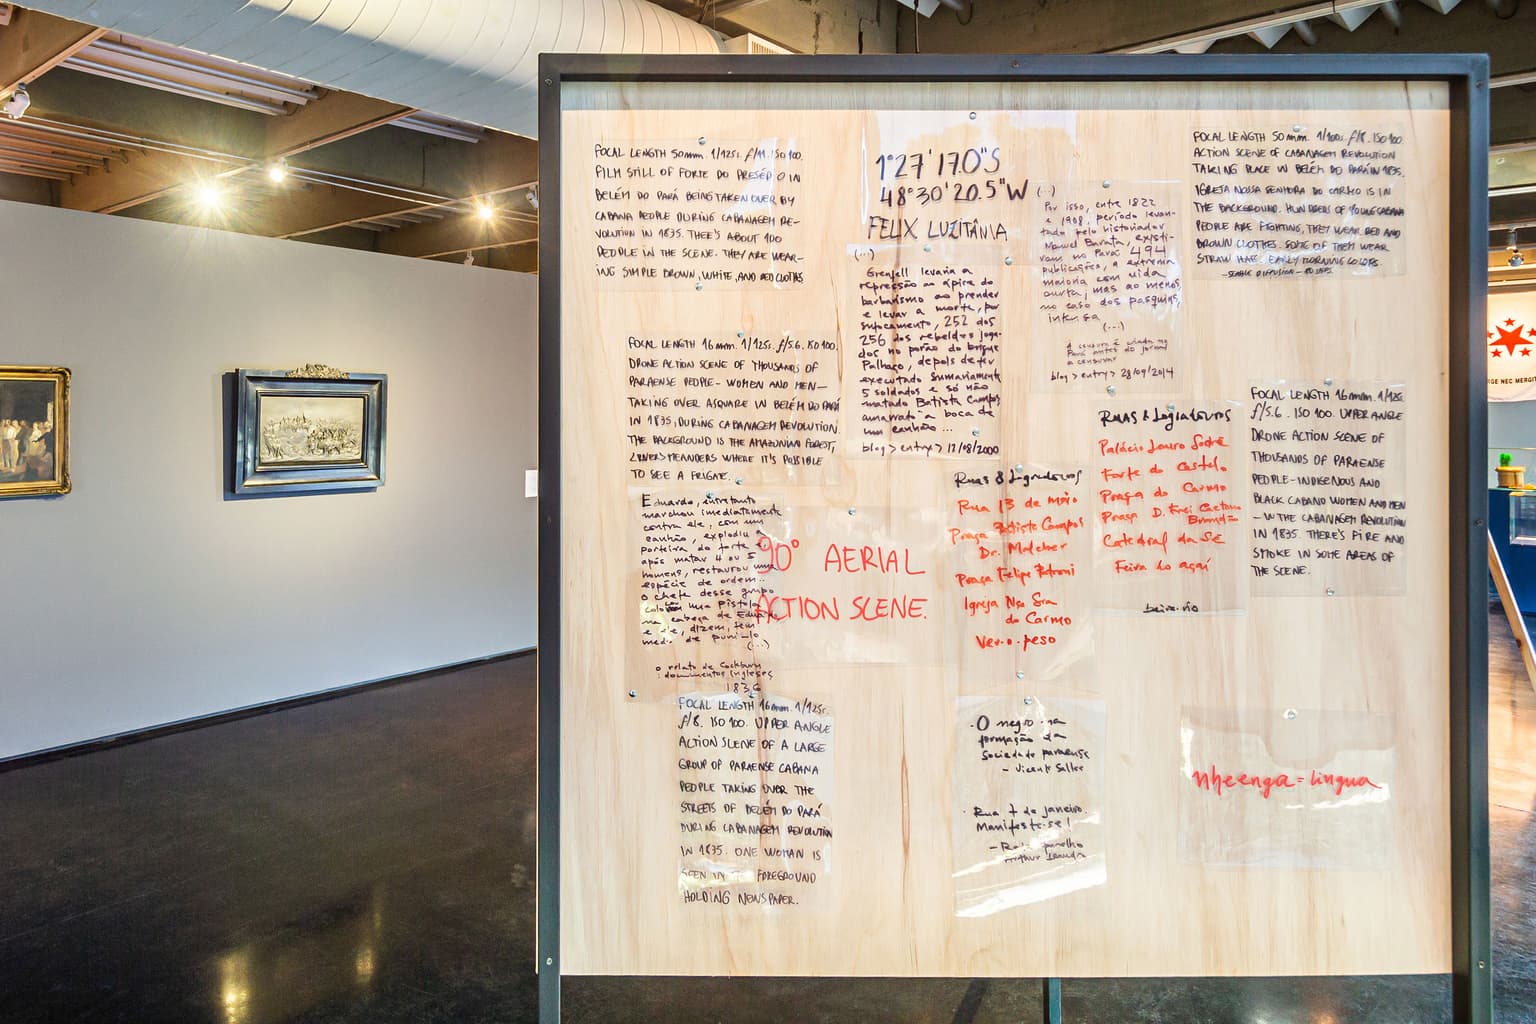 FOCAL LENGTH 50mm. 1/125s. f/11. ISO 100.
FILM STILL OF FORTE DO PRESÉPIO IN
BELÉM DO PARÁ BEING TAKEN OVER BY
CABANA PEOPLE DURING CABANAGEM RE-
VOLUTION IN 1835. THEE'S ABOUT 100
PEOPLE IN THE SCENE. THEY ARE WEAR-
ING SIMPLE BROWN, WHITE, AND RED CLOTHES
FOCAL LENGTH 16mm. 1/125s. f/5.6. ISO 100.
DRONE ACTION SCENE OF THOUSANDS OF
PARAENSE PEOPLE - WOMEN AND MEN -
TAKING OVER A SQUARE IN BELÉM DO PARÁ
IN 1835, DURING CABANAGEM REVOLUTION.
THE BACKGROUND IS THE AMAZONIAN FOREST,
MEANDERS WHERE IT'S POSSIBLE
TO SEE A FRIGATE.
Eduardo, entretanto
marchou imediatamente
contra ele, com um
canhão, explodiu a
porteira do forte e
após matar 4 ou 5
homens, restaurou uma
espécie de ordem...
o chefe desse grupo
colocou uma pistola
na cabeça de Eduardo
e ele, dizem, tem
medo de puni-lo
(...)
o relato de Cockburn
: documentos ingleses
1836
90° AERIAL
ACTION SCENE.
FOCAL LENGTH 16mm. 1/125s.
f/8. ISO 100. UPPER ANGLE
ACTION SCENE OF A LARGE
GROUP OF PARAENSE CABANA
PEOPLE TAKING OVER THE
STREETS OF BELÉM DO PARÁ
DURING CABANAGEM REVOLUTION
IN 1835. ONE WOMAN IS
SEEN IN FOREGROUND
HOLDING NEWSPAPER.
1°27'17.0"S
48°30'20.5"W
FELIX LUZITÂNIA
(...)
Grenfell levaria a
repressão ao ápice do
barbarismo ao prender
e levar a morte, por
sufocamento, 252 dos
256 dos rebeldes joga-
dos no porão do brigue
Palhaço, depois de ter
executado sumariamente
5 soldados e só não
matado Batista Campos
amarrado a boca de
um canhão...
blog > entry > 12/08/2000
(...)
Por isso, entre 1822
e 1908, período levan-
tado pelo historiador
Manuel Barata, existi-
ram no Pará 494
publicações, a extrema
maioria com vida
curta, mas ao menos,
no caso dos pasquins,
intensa
(...)
A censura é criada no
Pará antes do jornal
a censurar
blog > entry > 28/09/2014
FOCAL LENGTH 50mm. 1/100s. f/8. ISO 100.
ACTION SCENE OF CABANAGEM REVOLUTION
TAKING PLACE IN BELÉM DO PARÁ IN 1835.
IGREJA NOSSA SENHORA DO CARMO IS IN
THE BACKGROUND. HUNDREDS OF YOUNG CABANA
PEOPLE ARE FIGHTING, THEY WEAR RED AND
BROWN CLOTHES. SOME OF THEM WEAR
STRAW HATS. EARLY MORNING COLORS.
- STABLE DIFFUSION -
Ruas & Logradouros
Rua 13 de maio
Praça Batista Campos
Dr. Malcher
Praça Felipe Patroni
Igreja Nsa Sra
do Carmo
Ver-o-peso
Ruas & Logradouros
Palácio Lauro Sodré
Forte do Castelo
Praça do Carmo
Praça D. Frei Caetano
Brandão
Catedral da Sé
Feira do açaí
beira-rio
FOCAL LENGTH 16mm. 1/125s.
f/5.6. ISO 100. UPPER ANGLE
DRONE ACTION SCENE OF
THOUSANDS OF PARAENSE
PEOPLE - INDIGENOUS AND
BLACK CABANO WOMEN AND MEN
- IN THE CABANAGEM REVOLUTION
IN 1835. THERE'S FIRE AND
SMOKE IN SOME AREAS OF
THE SCENE.
· O negro na
formação da
Sociedade paraense
- Vicente Salles
· Rua 7 de janeiro.
Manifeste-se!
Arthur Leandro
nheenga = língua
NEC